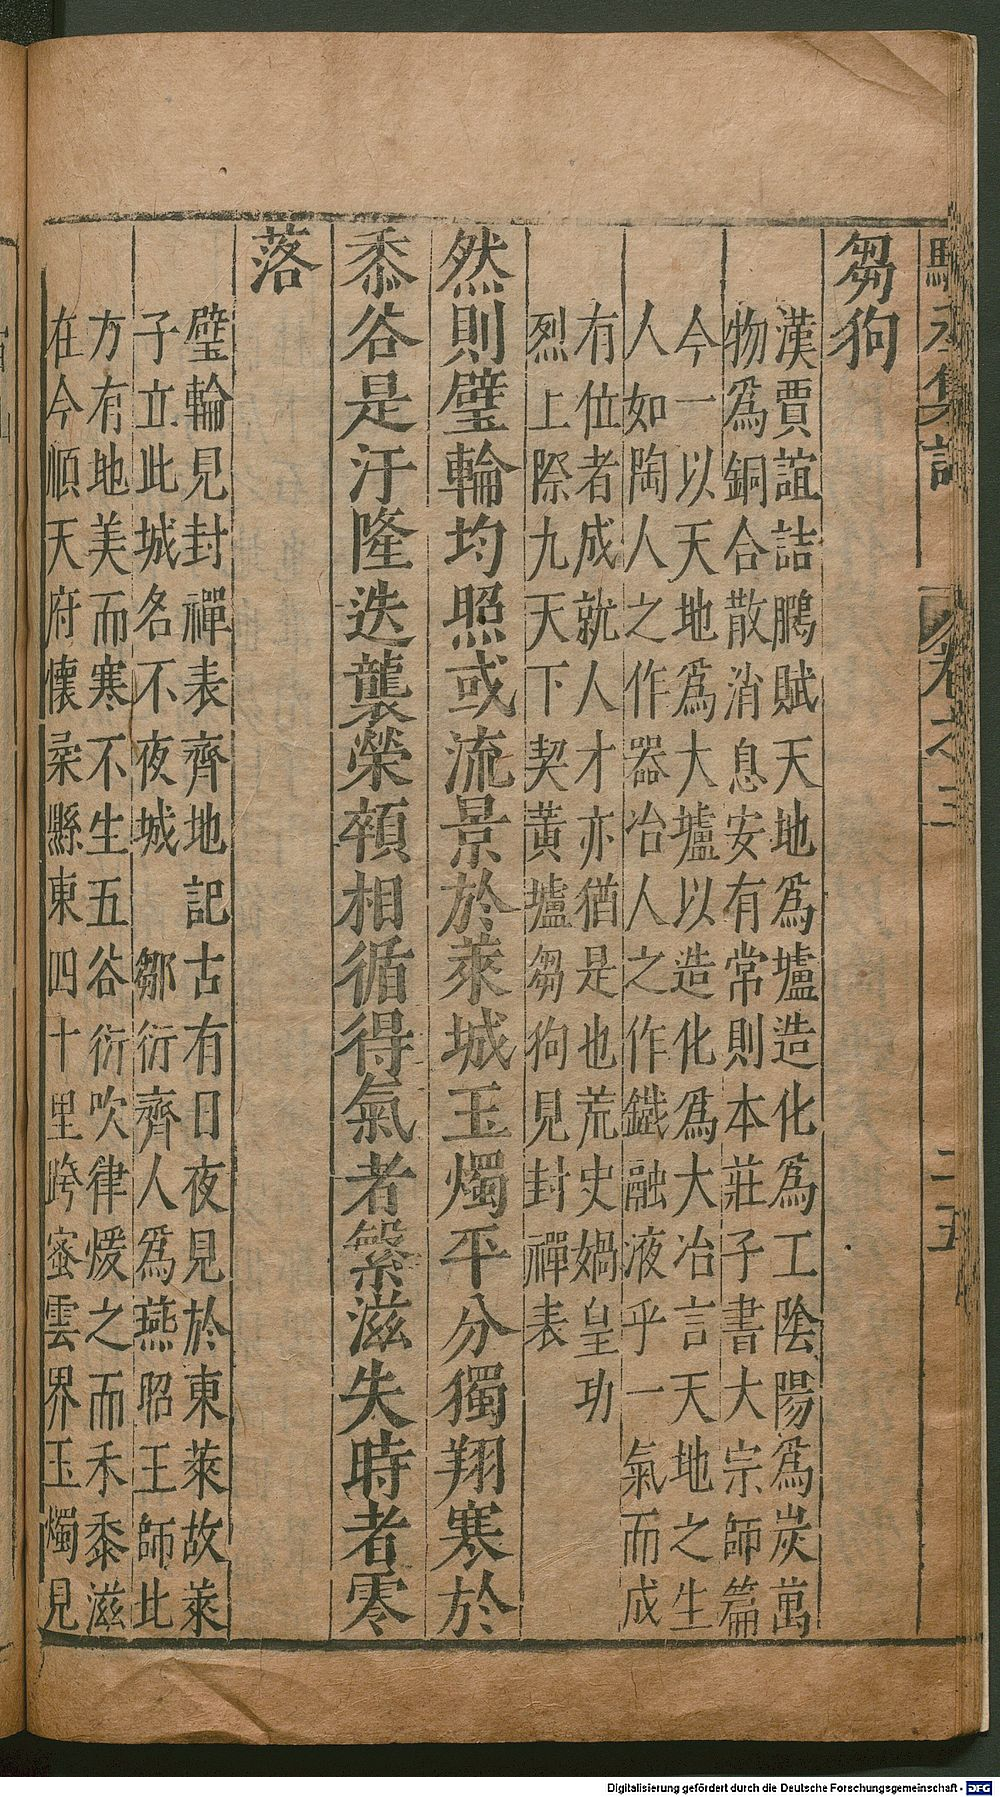 卷之三
芻狗
漢賈誼詰鵬賦天地為壚造化為工陰陽為炭萬
物為銅合散消息安有常則本莊子書大宗師篇
今一以天地為大壚以造化為大冶言天地之生
人如陶人之作器冶人之作鐵融液乎一氣而成
有位者成就人才亦猶是也荒史媧皇功
烈上際九天下契黃壚芻狗見封禪表
然則璧輪均照或流景於萊城玉燭平分獨翔寒於
黍谷是汙隆迭襲榮頓相循得氣者繁滋失時者零
落
璧輪見封禪表齊地記古有日夜見於東萊故萊
子立此城名不夜城 鄒衍齊人為燕昭王師北
方有地美而寒不生五谷衍吹律煖之而禾黍滋
在今順天府懷柔縣東四十里跨蜜雲界玉燭見
Digitalisierung gefördert durch die Deutsche Forschungsgemeinschaft - DFG